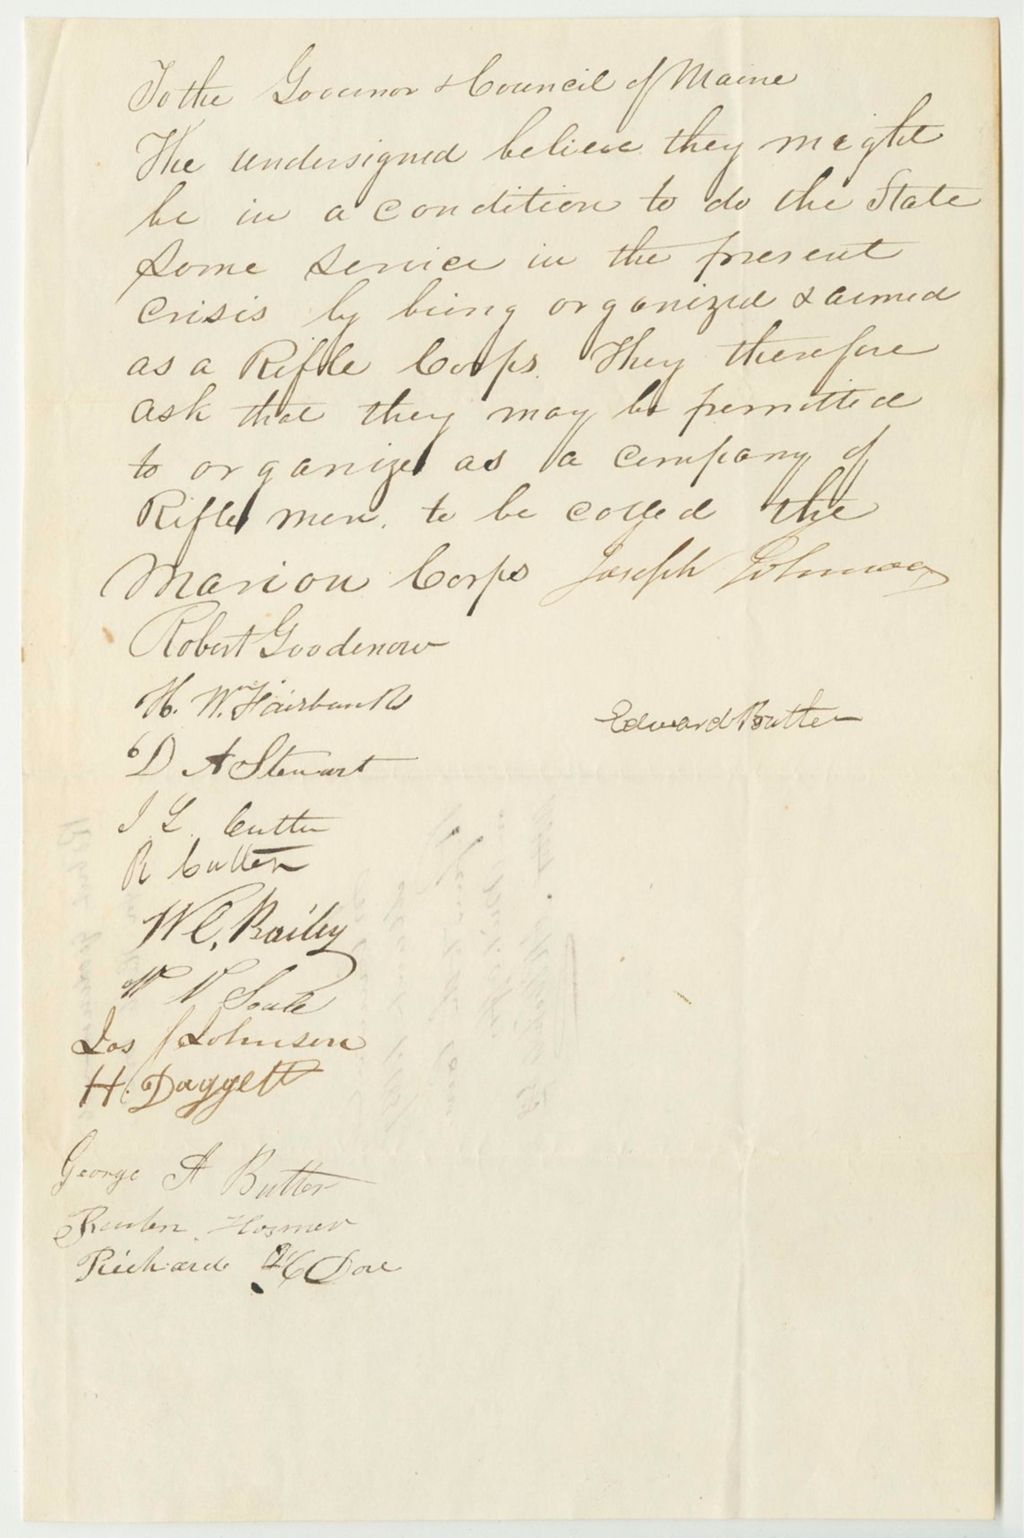 To the Governor & Council of Maine
The undersigned believe they might
be in a condition to do the State
some service in the present
crisis by being organized & armed
as a Rifle Corps. They therefore
ask that they may be permitted
to organize as a company of
Rifle men, to be called the
Marion Corps Joseph Johnson
Robert Goodenow
H. Wm Fairbanks
Edward Butler
D A Stewart
J L Cutler
R Cutler
W C, Bailey
N Soule
Jos J Johnson
H. Daggett
George A Butler
Reuben Hosmer
Richard H C Dore